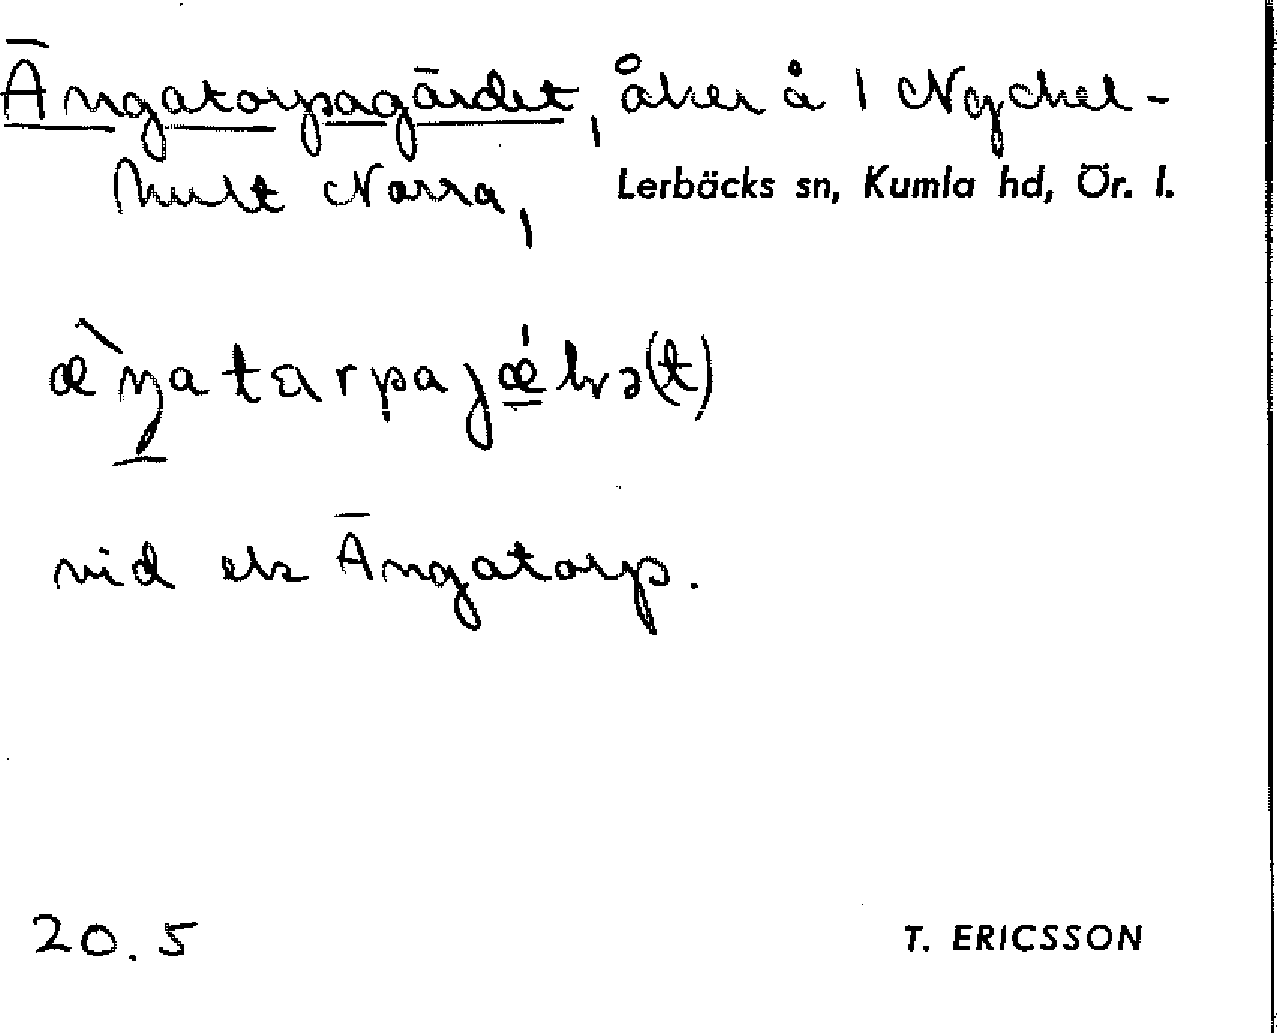 Ängatorpagärdet, åker å 1 Nyckel-
hult Norra, Lerbäcks sn, Kumla hd, Ör. l.
vid els Ängatorp.
20.5 T. ERICSSON